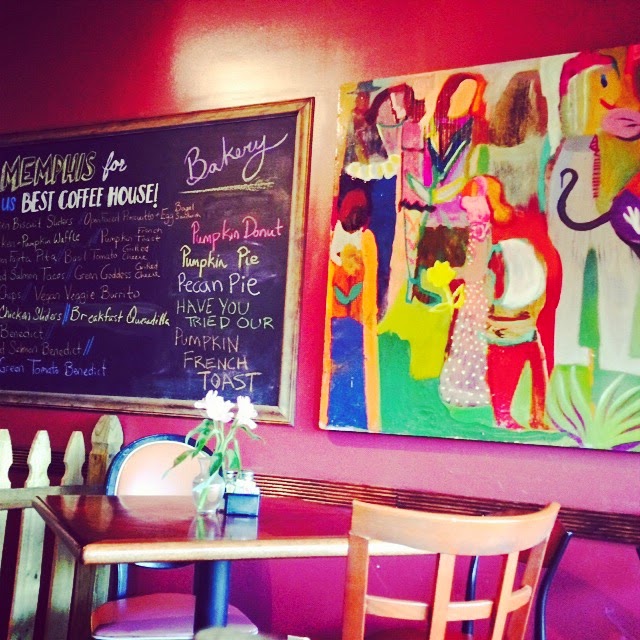 MEMPHIS for
us BEST COFFEE HOUSE!
Biscuit Sliders / Open Faced Prosciutto + Egg Bagel Sandwich
Pumpkin Waffle // Pumpkin French Toast
Pita / Basil Tomato Grilled Cheese
Salmon Tacos / Green Goddess Grilled Cheese
Chips / Vegan Veggie Burrito
Chicken Sliders // Breakfast Quesadilla
Benedict
Salmon Benedict //
Green Tomato Benedict
Bakery
Pumpkin Donut
Pumpkin Pie
Pecan Pie
HAVE YOU
TRIED OUR
PUMPKIN
FRENCH
TOAST